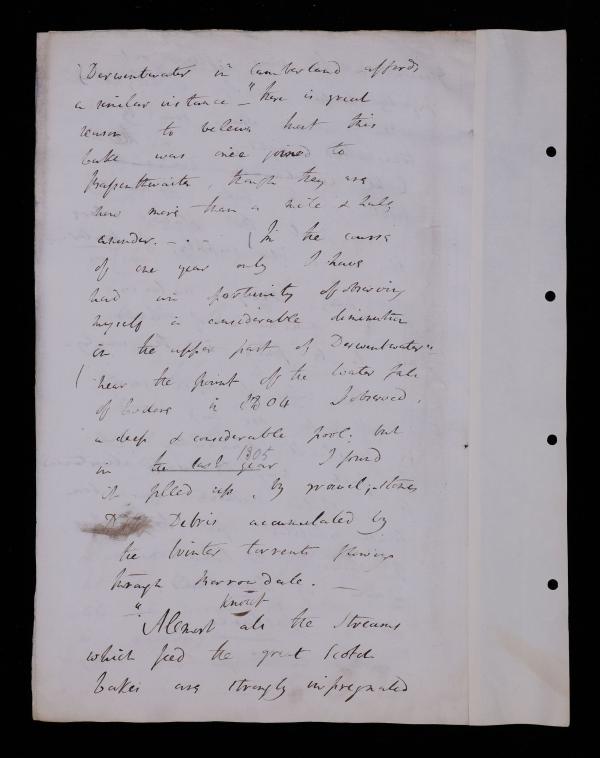 (Derwentwater in Cumberland affords
a similar instance — "there is great
reason to believe that this
Lake was once joined to
Bassenthwaite, though they are
now more than a mile & half
asunder. — . (In the course
of one year only I have
had an oportunity of observing
myself a considerable diminution
in the upper part of Derwentwater"
(near the point of the water fall
of Lodore in 1804 I observed,
a deep & considerable pool. but
in the last year 1805 I found
it filled up, by gravel, stones
Debris accumulated by
the Winter torrents flowing
through Borrowdale. —
"Almost all the Streams
which feed the great Scotch
Lakes are strongly impregnated